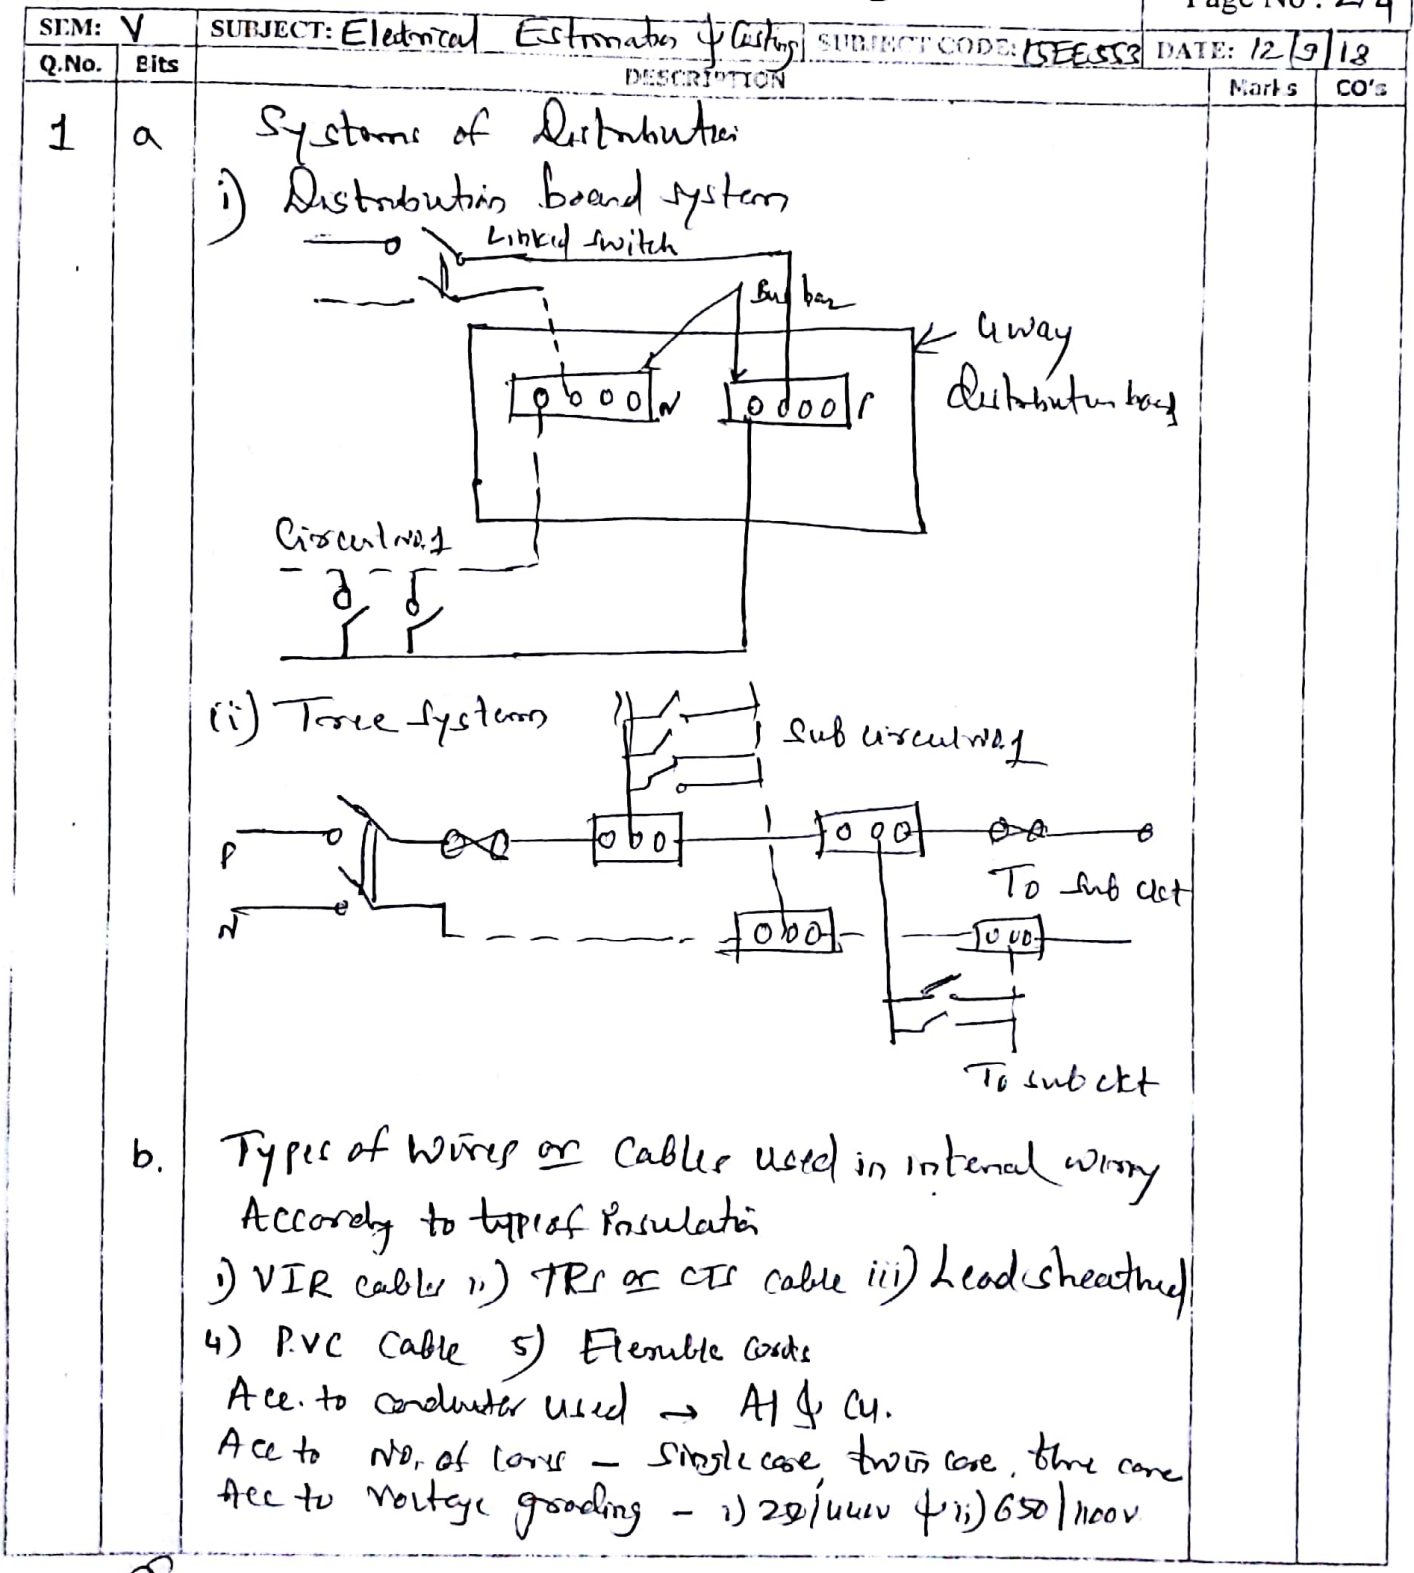 Page No : 2/4
SEM: V SUBJECT: Electrical Estimation & Costing SUBJECT CODE: 15EE553 DATE: 12/9/18
Q.No. Bits DESCRIPTION Marks CO's
1 a Systems of Distribution
i) Distribution board system
Linked switch
Bus bar
4 way
Distribution board
N P
Circuit No. 1
(ii) Tree System
Sub circuit No. 1
P
To Sub ckt
N
To sub ckt
b. Types of Wires or Cables used in internal wiring
According to type of insulation
i) VIR cables ii) TRS or CTS cable iii) Lead sheathed
4) P.VC Cable 5) Flexible Cords
Acc. to conductor used → Al & Cu.
Acc to No. of cores - Single core, twin core, three core
Acc to Voltage grading - i) /440V & ii) 650/1100V